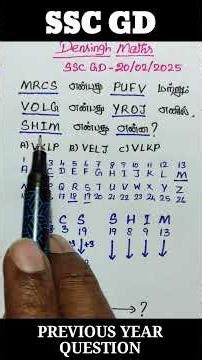 SSC GD
Densingh Maths
SSC GD - 20/02/2025
MRCS என்பது PUFV மற்றும்
VOLG என்பது YROJ எனில்,
SHIM என்பது என்ன?
A) VKLP B) VELJ C) VLKP
3 4 5 6 7 8 9 10 11 12 13
D E F G H I J K L M
P Q R S T U V W X Y Z
16 17 18 19 20 21 22 23 24 25 26
C S S H I M
3 19 19 8 9 13
+3
?
PREVIOUS YEAR
QUESTION